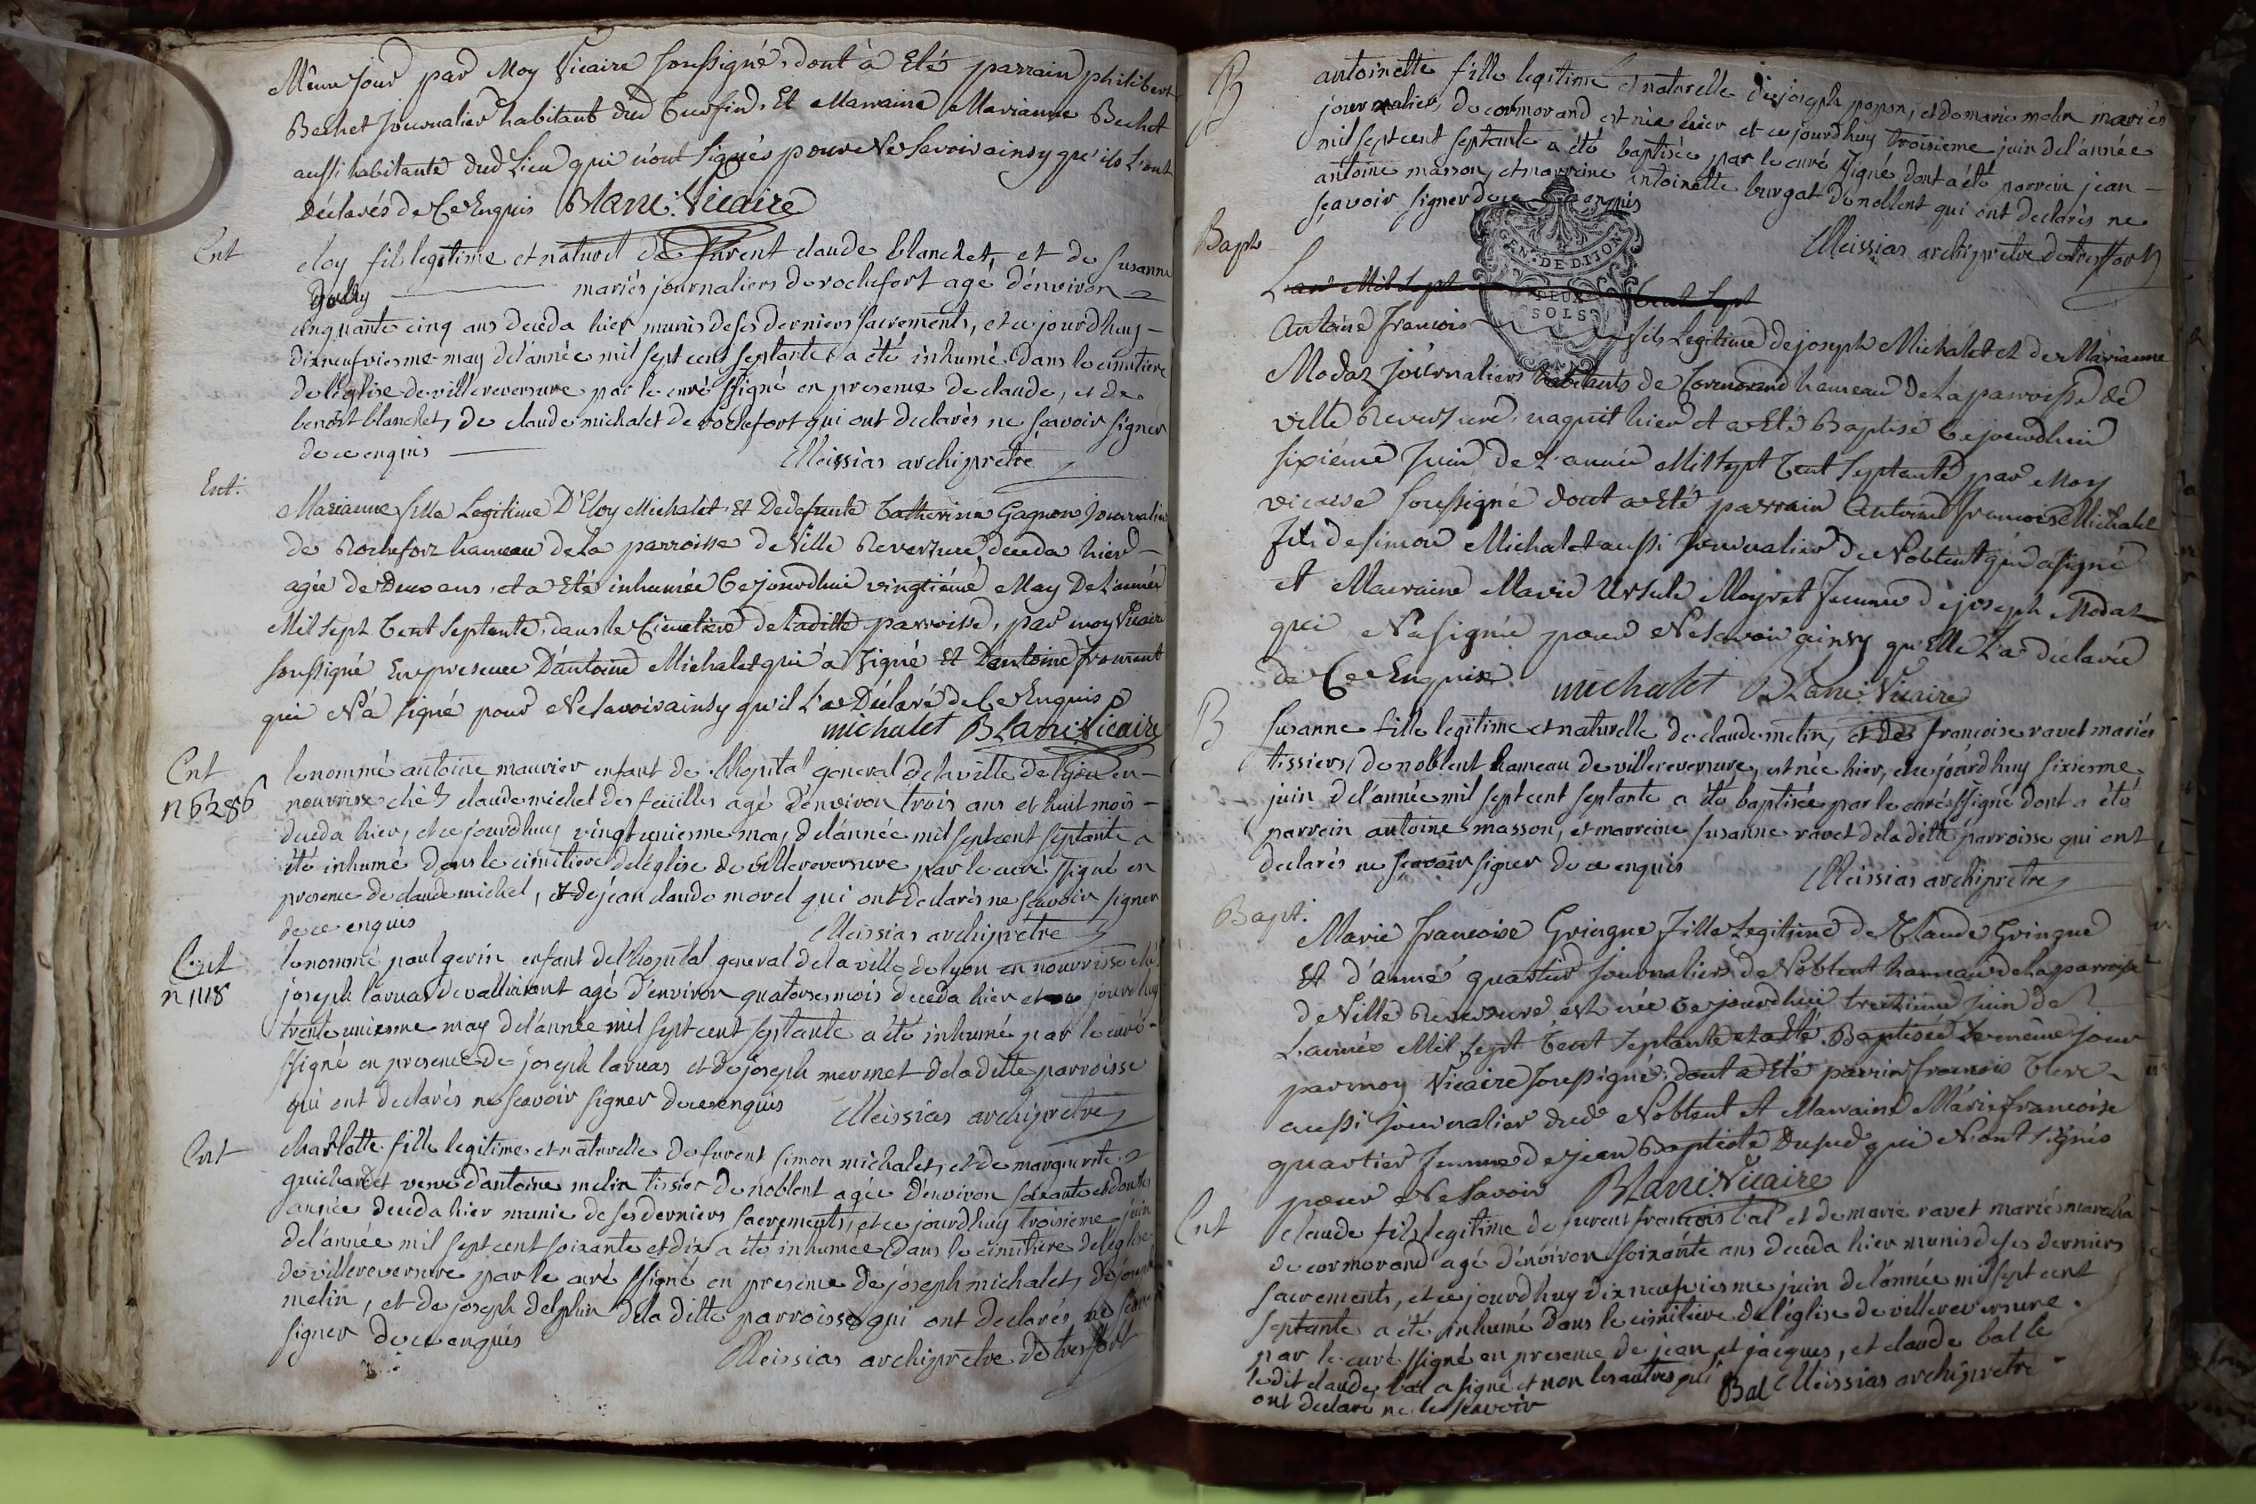 Même jour par Moy Vicaire soussigné, dont à Eté parrain philibert
Bechet journalier habitant dud Cuesfind. Et Marraine Marianne Bechet
aussi habitante dud Lieu qui n'ont signés pour Ne savoir ainsy qu'ils L'ont
Déclarés de Ce Enquis Blanc. Vicaire
Ent
eloy fils legitime et naturel de furent claude blanchet, et de susanne
mariés journaliers de rochefort agé d'environ
cinquante cinq ans deceda hier munis de ses derniers sacrements, et ce jourdhuy
dixneufviesme may de l'année mil sept cent septante a été inhumé dans le cimitiere
de l'eglise de villereversure par le curé ssigné en presence de claude, et de
benoit blanchet, de claude michalet de rochefort qui ont declarés ne sçavoir signer
de ce enquis Meissias archiprêtre
Ent.
Marianne fille Legitime D'Eloy Michalet Et De defunte Catherine Gagnon Journalier
de Rochefort hameau de la parroisse de Ville Reversure deceda hier
agée de Deux ans, et a Eté inhumée Cejourdhui vingtiéme May De L'année
Mil Sept Cent Septante, dans le Cimetiere de Laditte parroisse, par moy Vicaire
soussigné En presence D'antoine Michalet qui a signé Et D'antoine froment
qui N'a signé pour Ne Savoir ainsy qu'il L'a Déclaré de Ce Enquis
michalet Blanc. Vicaire
Ent
n 6286
le nommé antoine maurier enfant de l'hopital general de la ville de lyon en
nourrisse chés claude michel des feüilles agé d'environ trois ans et huit mois
deceda hier, et ce jourdhuy vingt uniesme may de l'année mil sept cent septante a
été inhumé dans le cimitiere de l'église de villereversure par le curé ssigné en
presence de claude michel, et de jean claude morel qui ont declarés ne sçavoir signer
de ce enquis Meissias archiprêtre
Ent
n 1118
le nommé paul gerin enfant de l'hopital general de la ville de lyon en nourrisse chés
joseph laruas de valliarant agé d'environ quatorse mois deceda hier et ce jourdhuy
trente uniesme may de l'année mil sept cent septante a été inhumé par le curé
ssigné en presence de joseph laruas et de joseph mermet de la ditte parroisse
qui ont declarés ne sçavoir signer de ce enquis Meissias archiprêtre
Ent
charlotte fille legitime et naturelle de furent simon michalet, et de marguerite
guichardet veuve d'antoine melin tissier de noblent agée d'environ soixante et douse
année deceda hier munie de ses derniers sacrements, et ce jourdhuy troisieme juin
de l'année mil sept cent soixante et dix a été inhumée dans le cimitiere de l'eglise
de villereversure par le curé ssigné en presence de joseph michalet, de joseph
melin, et de joseph delphin de la ditte parroisse qui ont declarés ne sçavoir
signer de ce enquis Meissias archiprêtre de treffort
B
antoinette fille legitime et naturelle de joseph popon, et de marie melin mariés
journaliers de cormorand est née hier et ce jourdhuy troisieme juin de l'année
mil sept cent septante a été baptisée par le curé ssigné dont a été parrein jean
antoine masson, et marreine antoinette burgat de noblent qui ont declarés ne
sçavoir signer de ce enquis
Meissias archiprêtre de treffort
GEN. DE DIJON
DEUX
SOLS
Bapt
L'an Mil Sept Cent Sept
Antoine francois fils Legitime de joseph Michalet et de Marianne
Modaz Journaliers habitants de Cormorand hameau de La parroisse de
ville Reversure, naquit hier et a Eté Baptisé Cejourdhui
sixiéme Juin de L'année Mil Sept Cent Septante par Moy
vicaire soussigné dont a Eté parrain Antoine francois Michalet
fils de simon Michalet aussi journalier de Noblent qui a signé
et Marraine Marie Ursule Moyret femme de joseph Modaz
qui N'a signée pour Ne savoir ainsy qu'Elle L'a déclarée
de Ce Enquise. michalet Blanc. Vicaire
B
Susanne fille legitime et naturelle de claude melin, et de francoise ravet mariés
tissiers, de noblent hameau de villereversure, est née hier, et ce jourdhuy sixiesme
juin de l'année mil sept cent septante a été baptisée par le curé ssigné dont a été
parrein antoine masson, et marreine susanne ravet de la ditte parroisse qui ont
declarés ne sçavoir signer de ce enquis Meissias archiprêtre
Bapt.
Marie francoise Gringne fille Legitime de Claude Gringne
Et d'anne quartier journaliers de Noblent hameau de la parroisse
de Ville Reversure est née Cejourdhui treiziéme juin de
L'année Mil Sept Cent Septante et a Eté Baptisée le même jour
par moy Vicaire soussigné, dont a Eté parrin francois Clerc
aussi journalier dud Noblent et Marraine Marie francoise
quartier femme de jean Baptiste Dusud qui N'ont signés
pour Ne Savoir Blanc. Vicaire
Ent
claude fils legitime de furent francois bal et de marie ravet mariés
de cormorand agé d'environ soixante ans deceda hier munis de ses derniers
sacrements, et ce jourdhuy dixneufviesme juin de l'année mil sept cent
septante a été inhumé dans le cimitiere de l'église de villereversure
par le curé ssigné en presence de jean et jacques, et claude bal le
ledit claude bal a signé et non les autres qui Bal Meissias archiprêtre
ont declaré ne le sçavoir